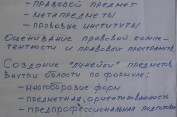 - правовой предмет
- метапредметы
- правовые институты
Оценивание правовой компе-
тентности и правовой
Создание "линейки" предметов
внутри области по формуле:
- многообразие форм
- предметная ориентированность
- предпрофессиональная подготовка